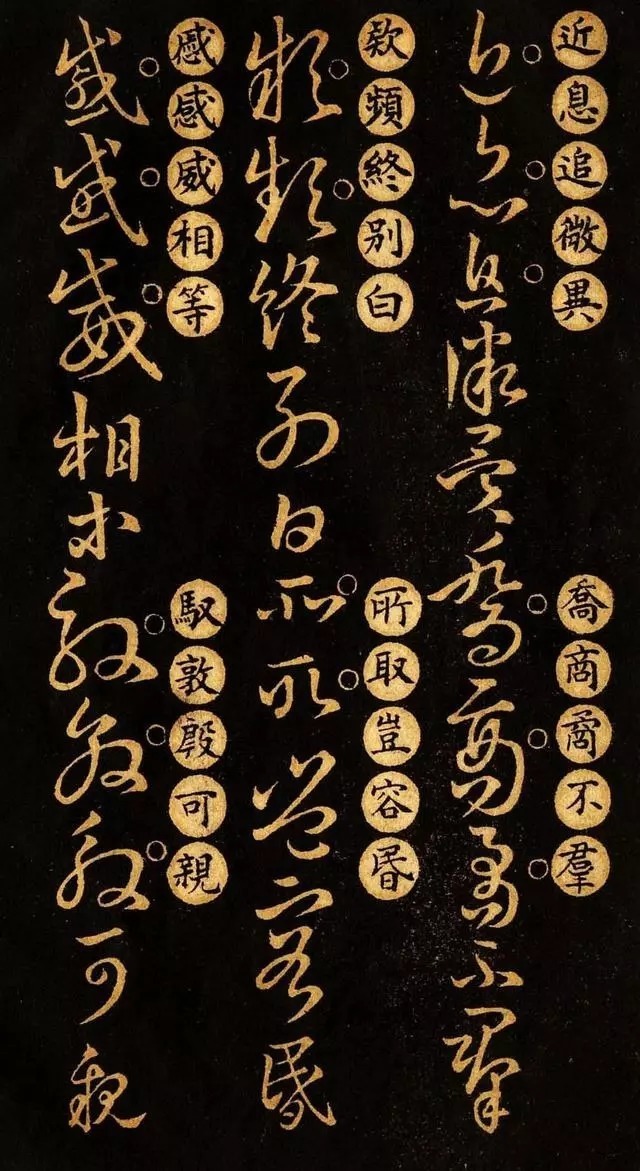 近息追微異
喬商矞不羣
近息追微異喬商矞不羣
欵頻終别白
所取豈容昬
欵頻終别白所取豈容昬
慼感威相等
馭敦殷可親
慼感威相等馭敦殷可親